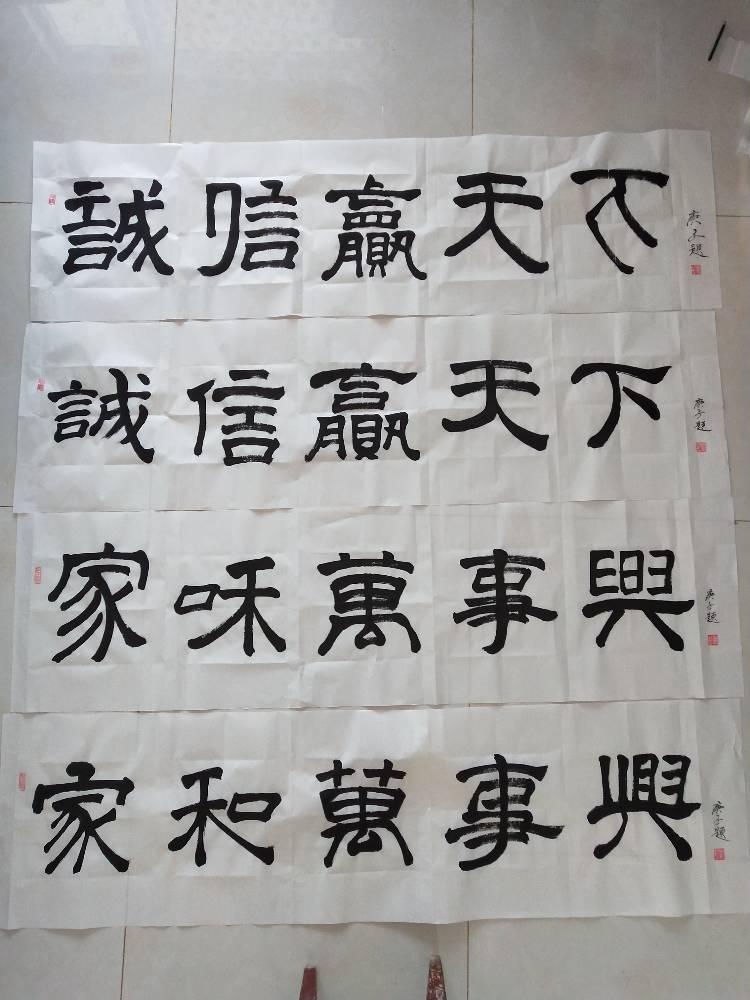 誠信贏天下 庚子題
誠信贏天下 庚子題
家咊萬事興 庚子題
家和萬事興 庚子題